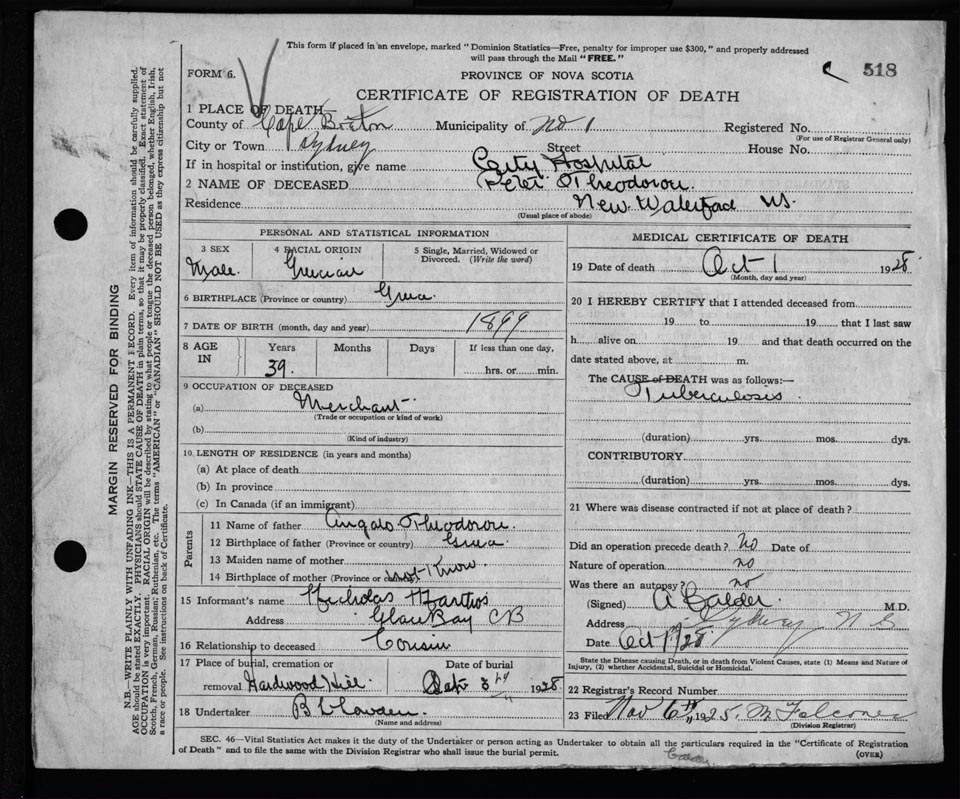 This form if placed in an envelope, marked "Dominion Statistics—Free, penalty for improper use $300," and properly addressed
will pass through the Mail "FREE."
FORM 6.
PROVINCE OF NOVA SCOTIA
518
CERTIFICATE OF REGISTRATION OF DEATH
1 PLACE OF DEATH
County of Cape Breton Municipality of No 1 Registered No.
(For use of Registrar General only)
City or Town Sydney Street House No.
If in hospital or institution, give name City Hospital
2 NAME OF DECEASED Peter Theodorou
Residence New Waterford NS.
(Usual place of abode)
PERSONAL AND STATISTICAL INFORMATION
3 SEX 4 RACIAL ORIGIN 5 Single, Married, Widowed or
Divorced. (Write the word)
Male Grecian
6 BIRTHPLACE (Province or country)
7 DATE OF BIRTH (month, day and year) 1899
8 AGE IN Years Months Days If less than one day,
39. hrs. or min.
9 OCCUPATION OF DECEASED
(a) Merchant
(Trade or occupation or kind of work)
(b)
(Kind of industry)
10. LENGTH OF RESIDENCE (in years and months)
(a) At place of death
(b) In province
(c) In Canada (if an immigrant)
Parents
11 Name of father Theodorou
12 Birthplace of father (Province or country)
13 Maiden name of mother
14 Birthplace of mother (Province or country) not Know
15 Informant's name Nicholas
Address Glace Bay CB
16 Relationship to deceased Cousin
17 Place of burial, cremation or Date of burial
removal Hardwood Hill 3 1928
18 Undertaker
(Name and address)
MEDICAL CERTIFICATE OF DEATH
19 Date of death Oct 1 1928
(Month, day and year)
20 I HEREBY CERTIFY that I attended deceased from
19 to 19 that I last saw
h alive on 19 and that death occurred on the
date stated above, at m.
The CAUSE of DEATH was as follows:—
Tuberculosis
(duration) yrs. mos. dys.
CONTRIBUTORY
(duration) yrs. mos. dys.
21 Where was disease contracted if not at place of death?
Did an operation precede death? No Date of
Nature of operation no
Was there an autopsy? no
(Signed) A Calder M.D.
Address Sydney N S
Date Oct 1/28
State the Disease causing Death, or in death from Violent Causes, state (1) Means and Nature of
Injury, (2) whether Accidental, Suicidal or Homicidal.
22 Registrar's Record Number
23 Filed Nov 6th 1925.
(Division Registrar)
SEC. 46—Vital Statistics Act makes it the duty of the Undertaker or person acting as Undertaker to obtain all the particulars required in the "Certificate of Registration
of Death" and to file the same with the Division Registrar who shall issue the burial permit. (OVER)
MARGIN RESERVED FOR BINDING
N.B.—WRITE PLAINLY WITH UNFADING INK—THIS IS A PERMANENT RECORD. Every item of information should be carefully supplied.
AGE should be stated EXACTLY. PHYSICIANS should STATE CAUSE OF DEATH in plain terms, so that it may be properly classified. Exact statement of
OCCUPATION is very important. RACIAL ORIGIN will be described by stating to what people or tongue the deceased person belonged, whether English, Irish,
Scotch, French, German, Russian, Ruthenian, etc. The terms "AMERICAN" or "CANADIAN" SHOULD NOT BE USED as they express citizenship but not
a race or people. See instructions on back of Certificate.